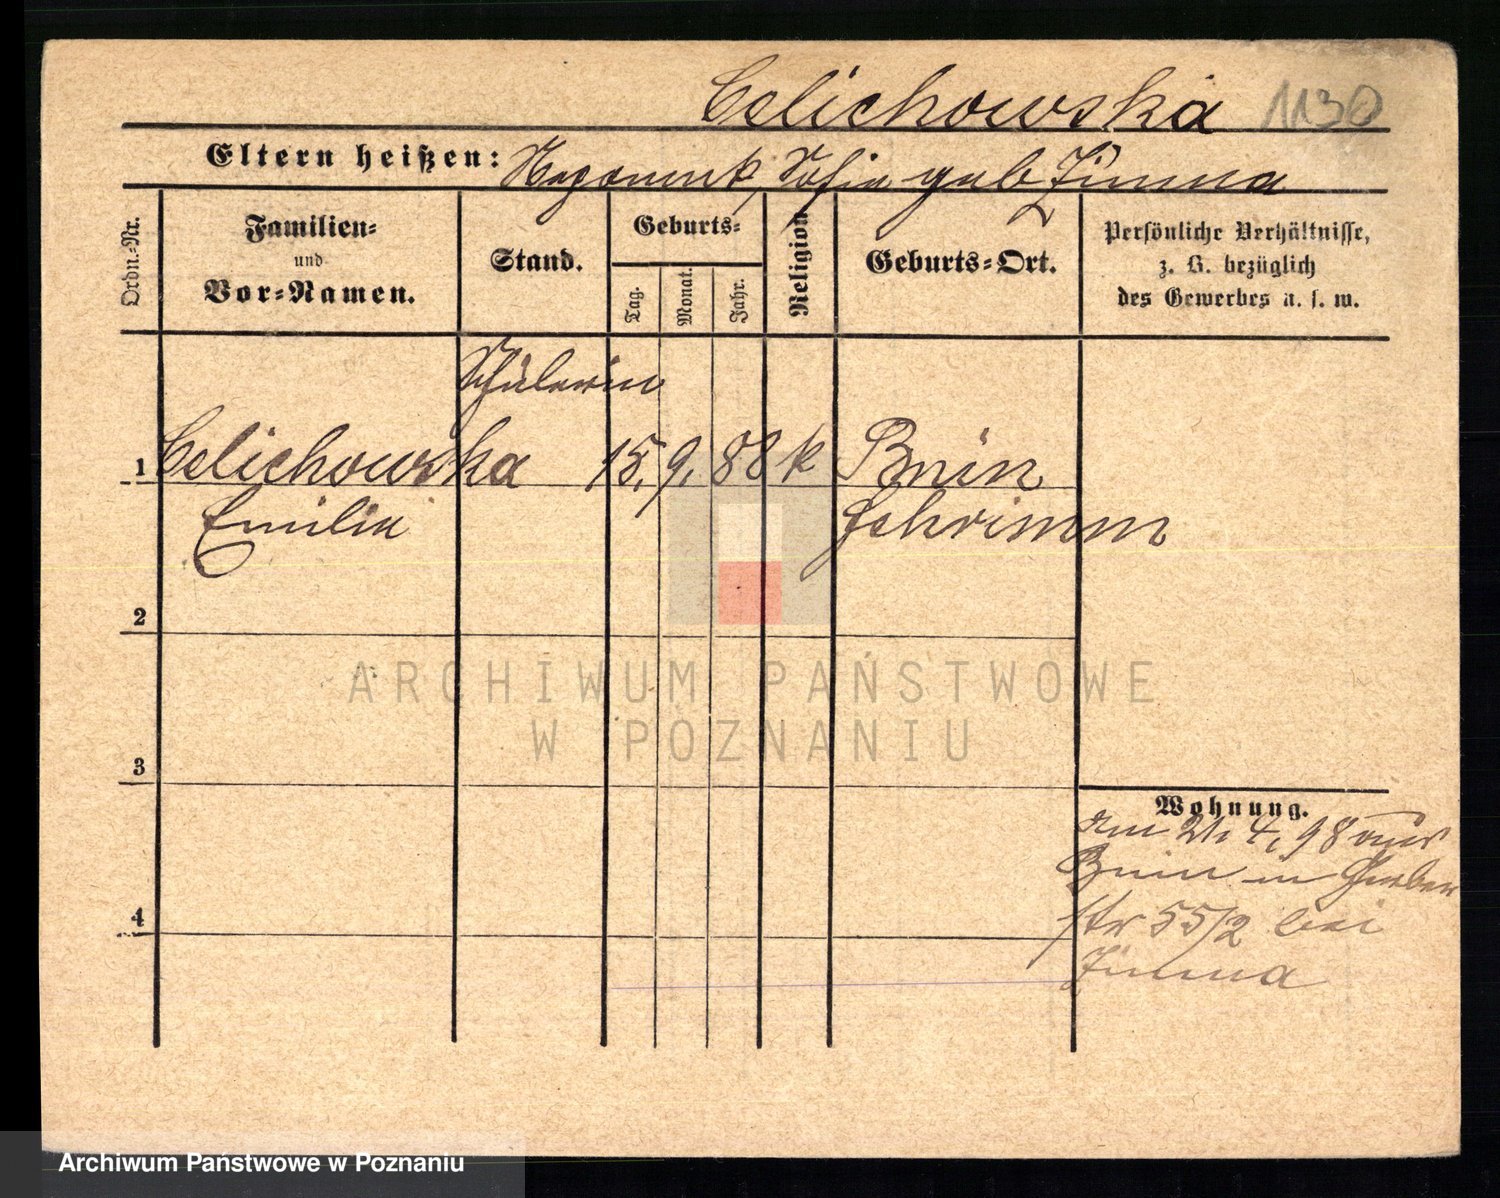 Celichowska 1130
Eltern heißen: Nepomuk Sofia geb Zimna
Ordn.-Nr.
Familien-
und
Vor-Namen.
Stand.
Geburts-
Tag.
Monat.
Jahr.
Religion
Geburts-Ort.
Persönliche Verhältnisse,
z. B. bezüglich
des Gewerbes u. s. w.
Schülerin
1 Celichowska 15. 9. 88 k Bnin
Emilie Schrimm
2
ARCHIWUM PAŃSTWOWE
W POZNANIU
3
Wohnung.
am 21. 4. 98 aus
Bnin in Gerber
str 55/2 bei
Zimna
4
Archiwum Państwowe w Poznaniu